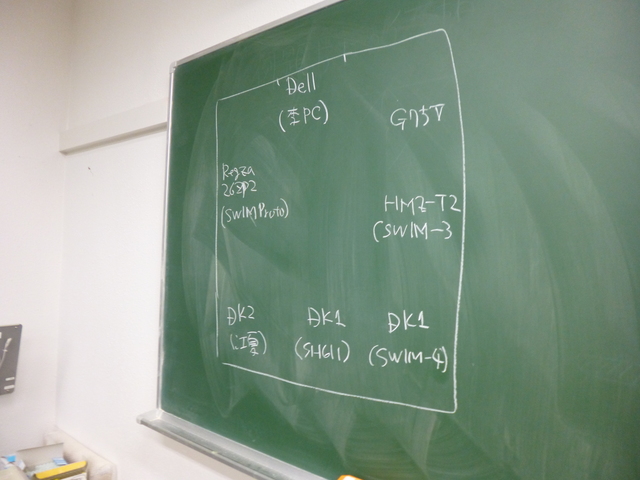 Dell
G75V
Regza
26ZP2
(SWIM Proto)
HMZ-T2
(SWIM-3
DK2
DK1
(SH6I1)
DK1
(SWIM-4)